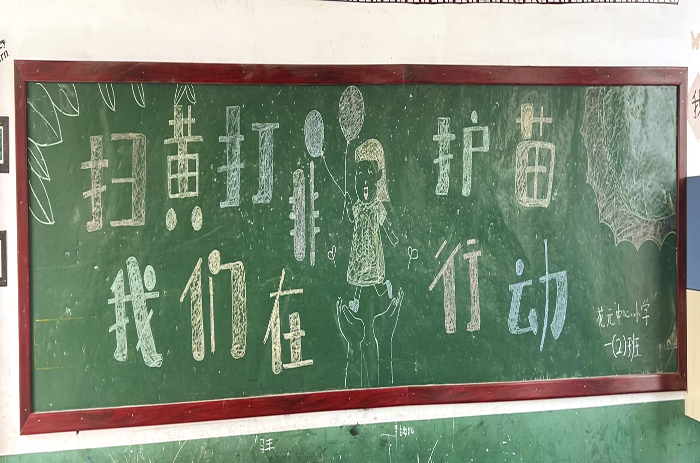 扫黄打非 护苗
我们在行动
龙元中心小学
一(2)班